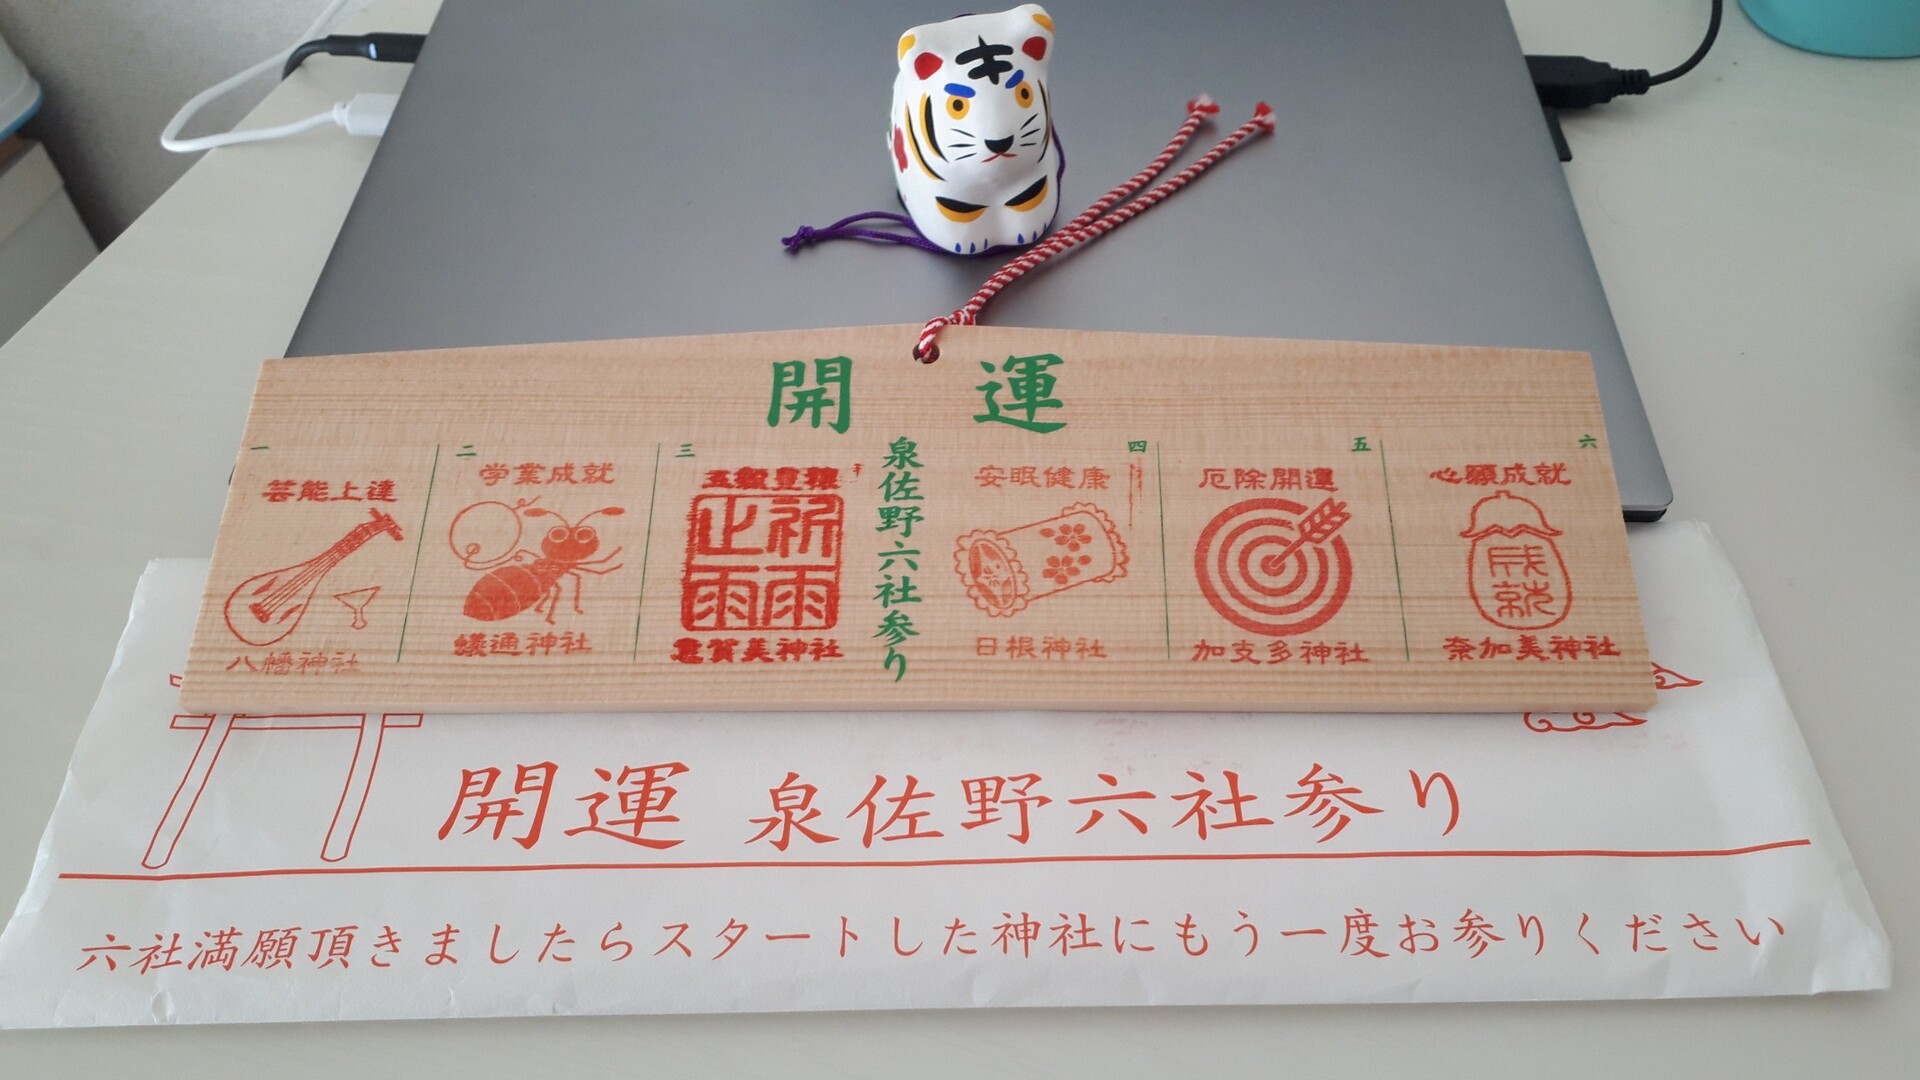 開運
泉佐野六社参り
一
芸能上達
八幡神社
二
学業成就
蟻通神社
三
五穀豊穣
祈雨
止雨
意賀美神社
四
安眠健康
日根神社
五
厄除開運
加支多神社
六
心願成就
成就
奈加美神社
開運 泉佐野六社参り
六社満願頂きましたらスタートした神社にもう一度お参りください